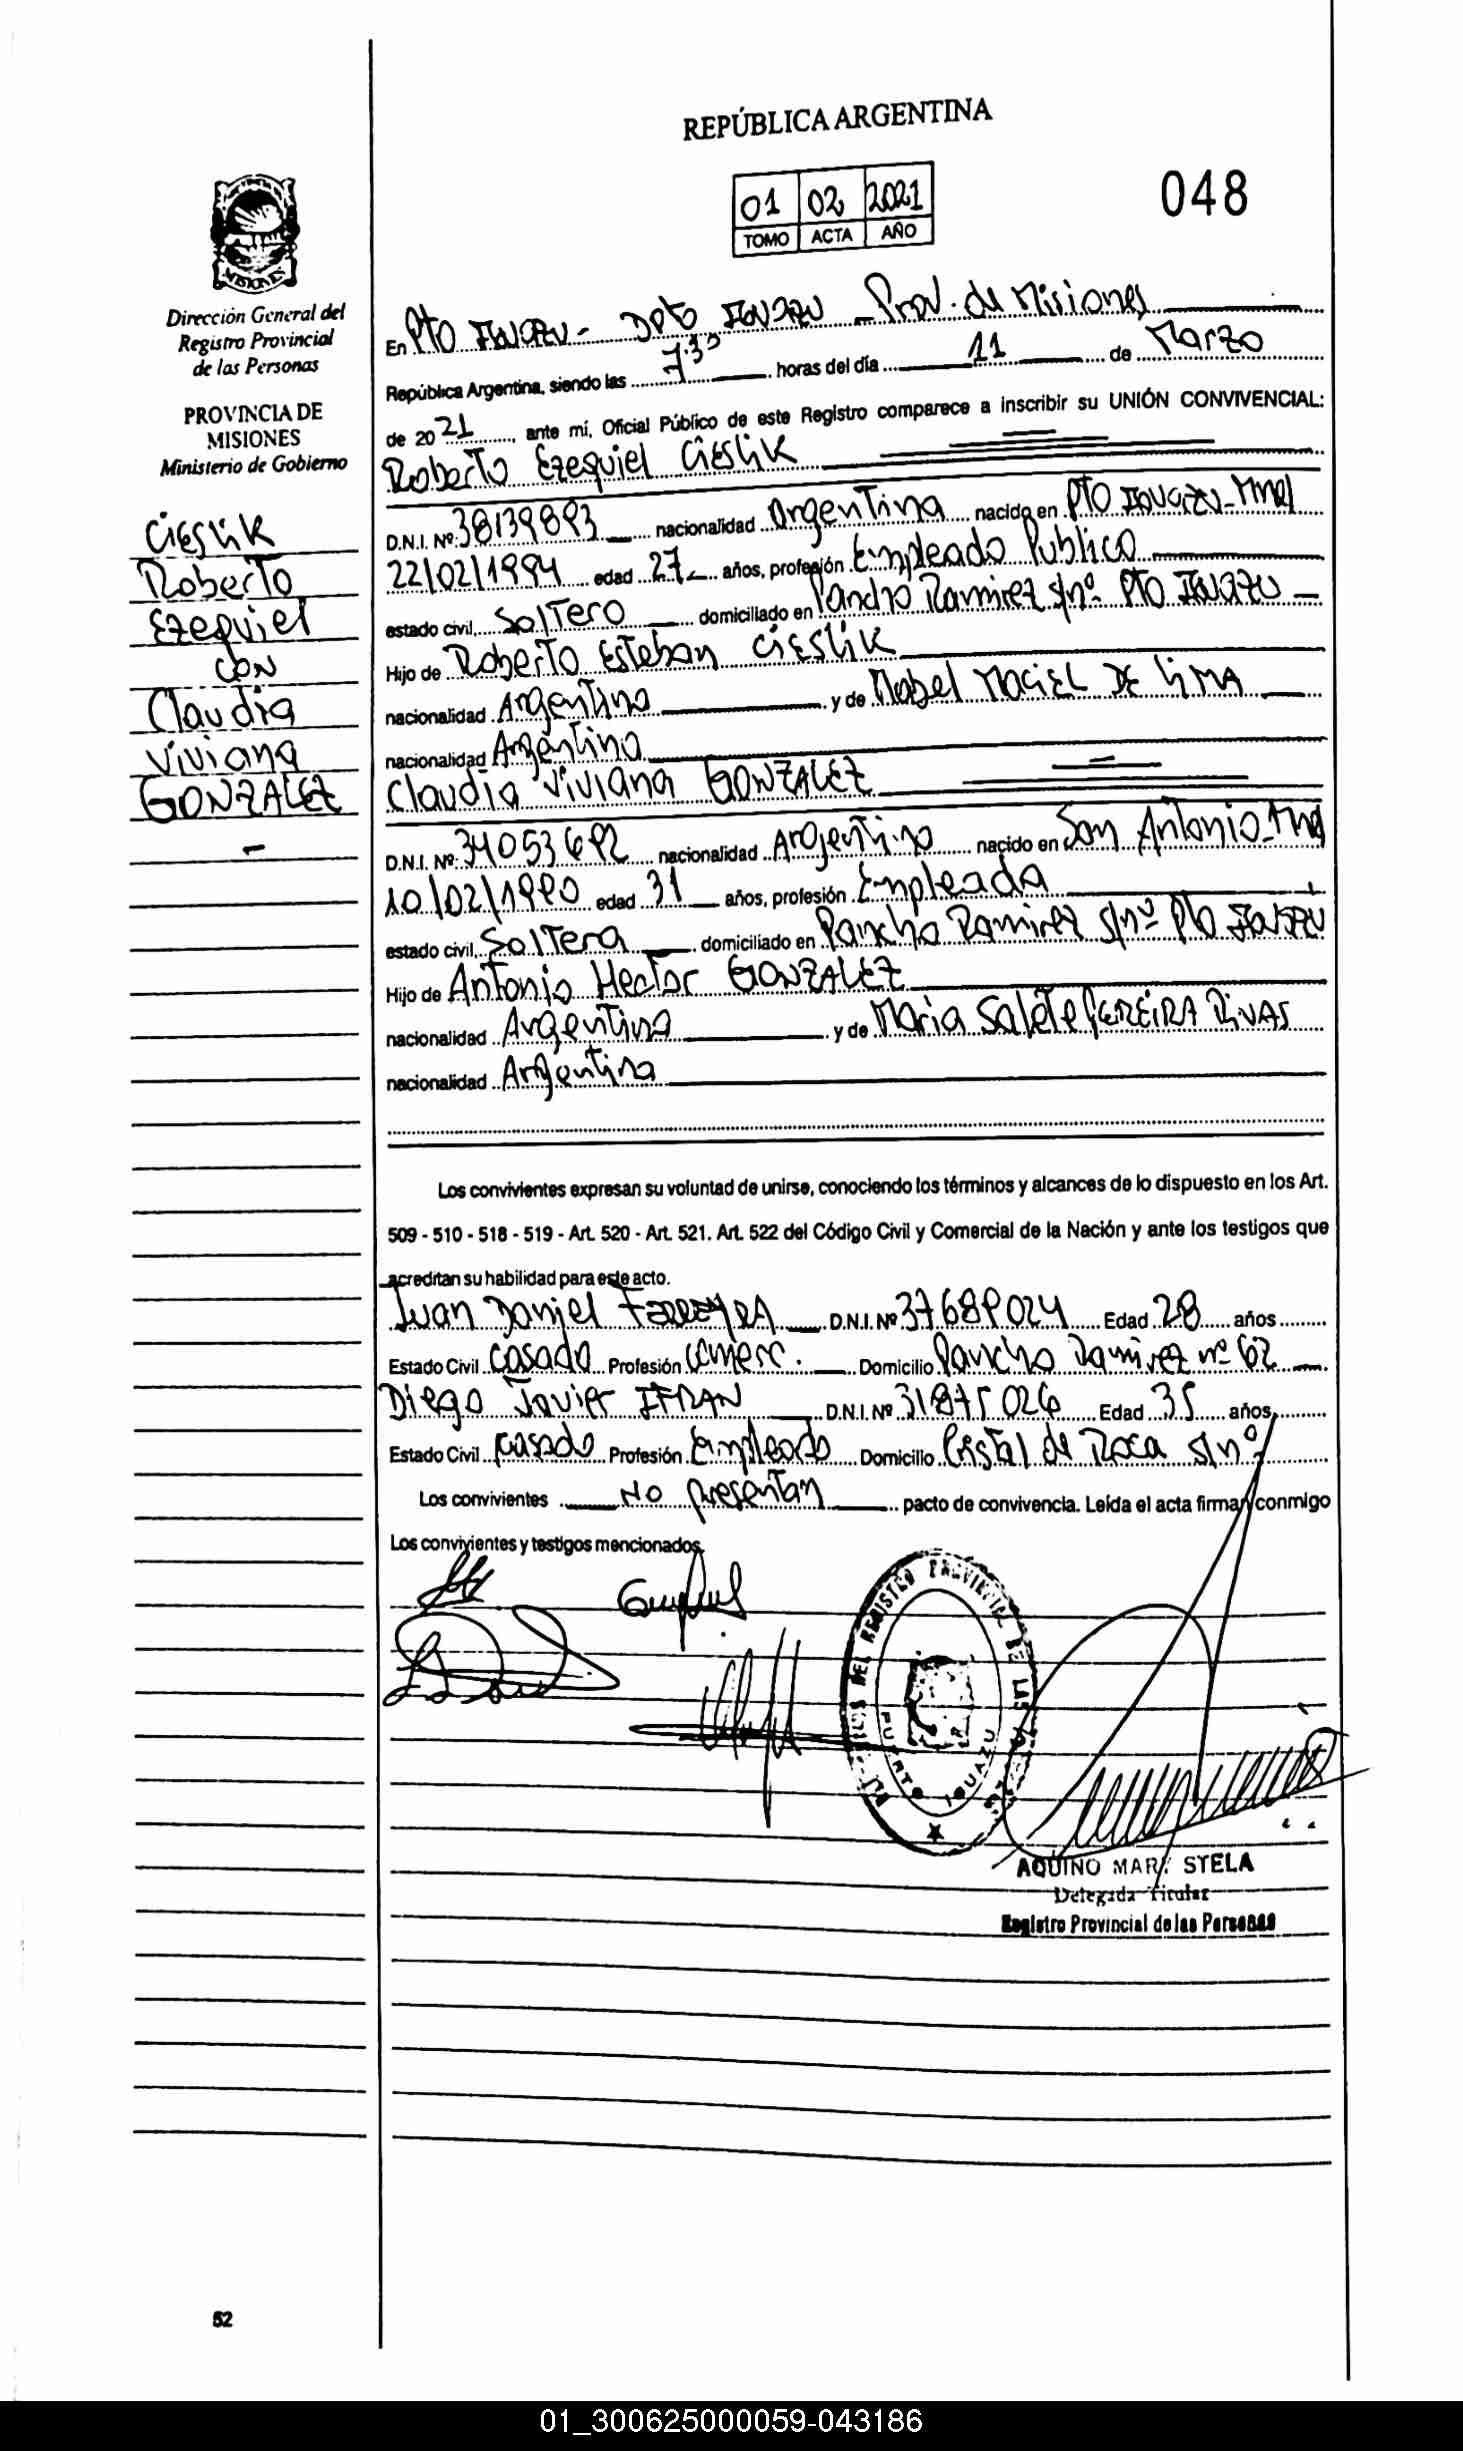 REPÚBLICA ARGENTINA
01 02 2021
TOMO ACTA AÑO
048
MISIONES
Dirección General del
Registro Provincial
de las Personas
PROVINCIA DE
MISIONES
Ministerio de Gobierno
CIESLIK
Roberto
Ezequiel
CON
Claudia
Viviana
GONZALEZ
En Pto IGUAZU - Dpto IGUAZU - Prov. de Misiones
República Argentina, siendo las 7 30 horas del día 11 de Marzo
de 2021, ante mí, Oficial Público de este Registro comparece a inscribir su UNIÓN CONVIVENCIAL:
Roberto Ezequiel CIESLIK
D.N.I. Nº: 38139893 nacionalidad Argentina nacido en PTO IGUAZU-Mnes
22/02/1994 edad 27 años, profesión Empleado Publico
estado civil, Soltero domiciliado en Pancho Ramirez s/nº Pto IGUAZU
Hijo de Roberto Esteban CIESLIK
nacionalidad Argentino y de Mabel MACIEL DE LIMA
nacionalidad Argentina
Claudia Viviana GONZALEZ
D.N.I. Nº: 34053692 nacionalidad Argentina nacido en San Antonio-Mnes
10/02/1990 edad 31 años, profesión Empleada
estado civil, Soltera domiciliado en Pancho Ramirez s/nº Pto IGUAZU
Hijo de Antonio Hector GONZALEZ
nacionalidad Argentina y de Maria Salete PEREIRA RIVAS
nacionalidad Argentina
Los convivientes expresan su voluntad de unirse, conociendo los términos y alcances de lo dispuesto en los Art.
509 - 510 - 518 - 519 - Art. 520 - Art. 521. Art. 522 del Código Civil y Comercial de la Nación y ante los testigos que
acreditan su habilidad para este acto.
Juan Daniel FERREYRA D.N.I. Nº 37689024 Edad 28 años
Estado Civil Casado Profesión Comerc. Domicilio Pancho Ramirez nº 62
Diego Javier IFRAN D.N.I. Nº 31875026 Edad 35 años
Estado Civil Casado Profesión Empleado Domicilio Cristal de Roca s/nº
Los convivientes No presentan pacto de convivencia. Leída el acta firman conmigo
Los convivientes y testigos mencionados.
DEL REGISTRO PROVINCIAL DE LAS
PUERTO IGUAZU
AQUINO MARI STELA
Delegada Titular
Registro Provincial de las Personas
52
01_300625000059-043186